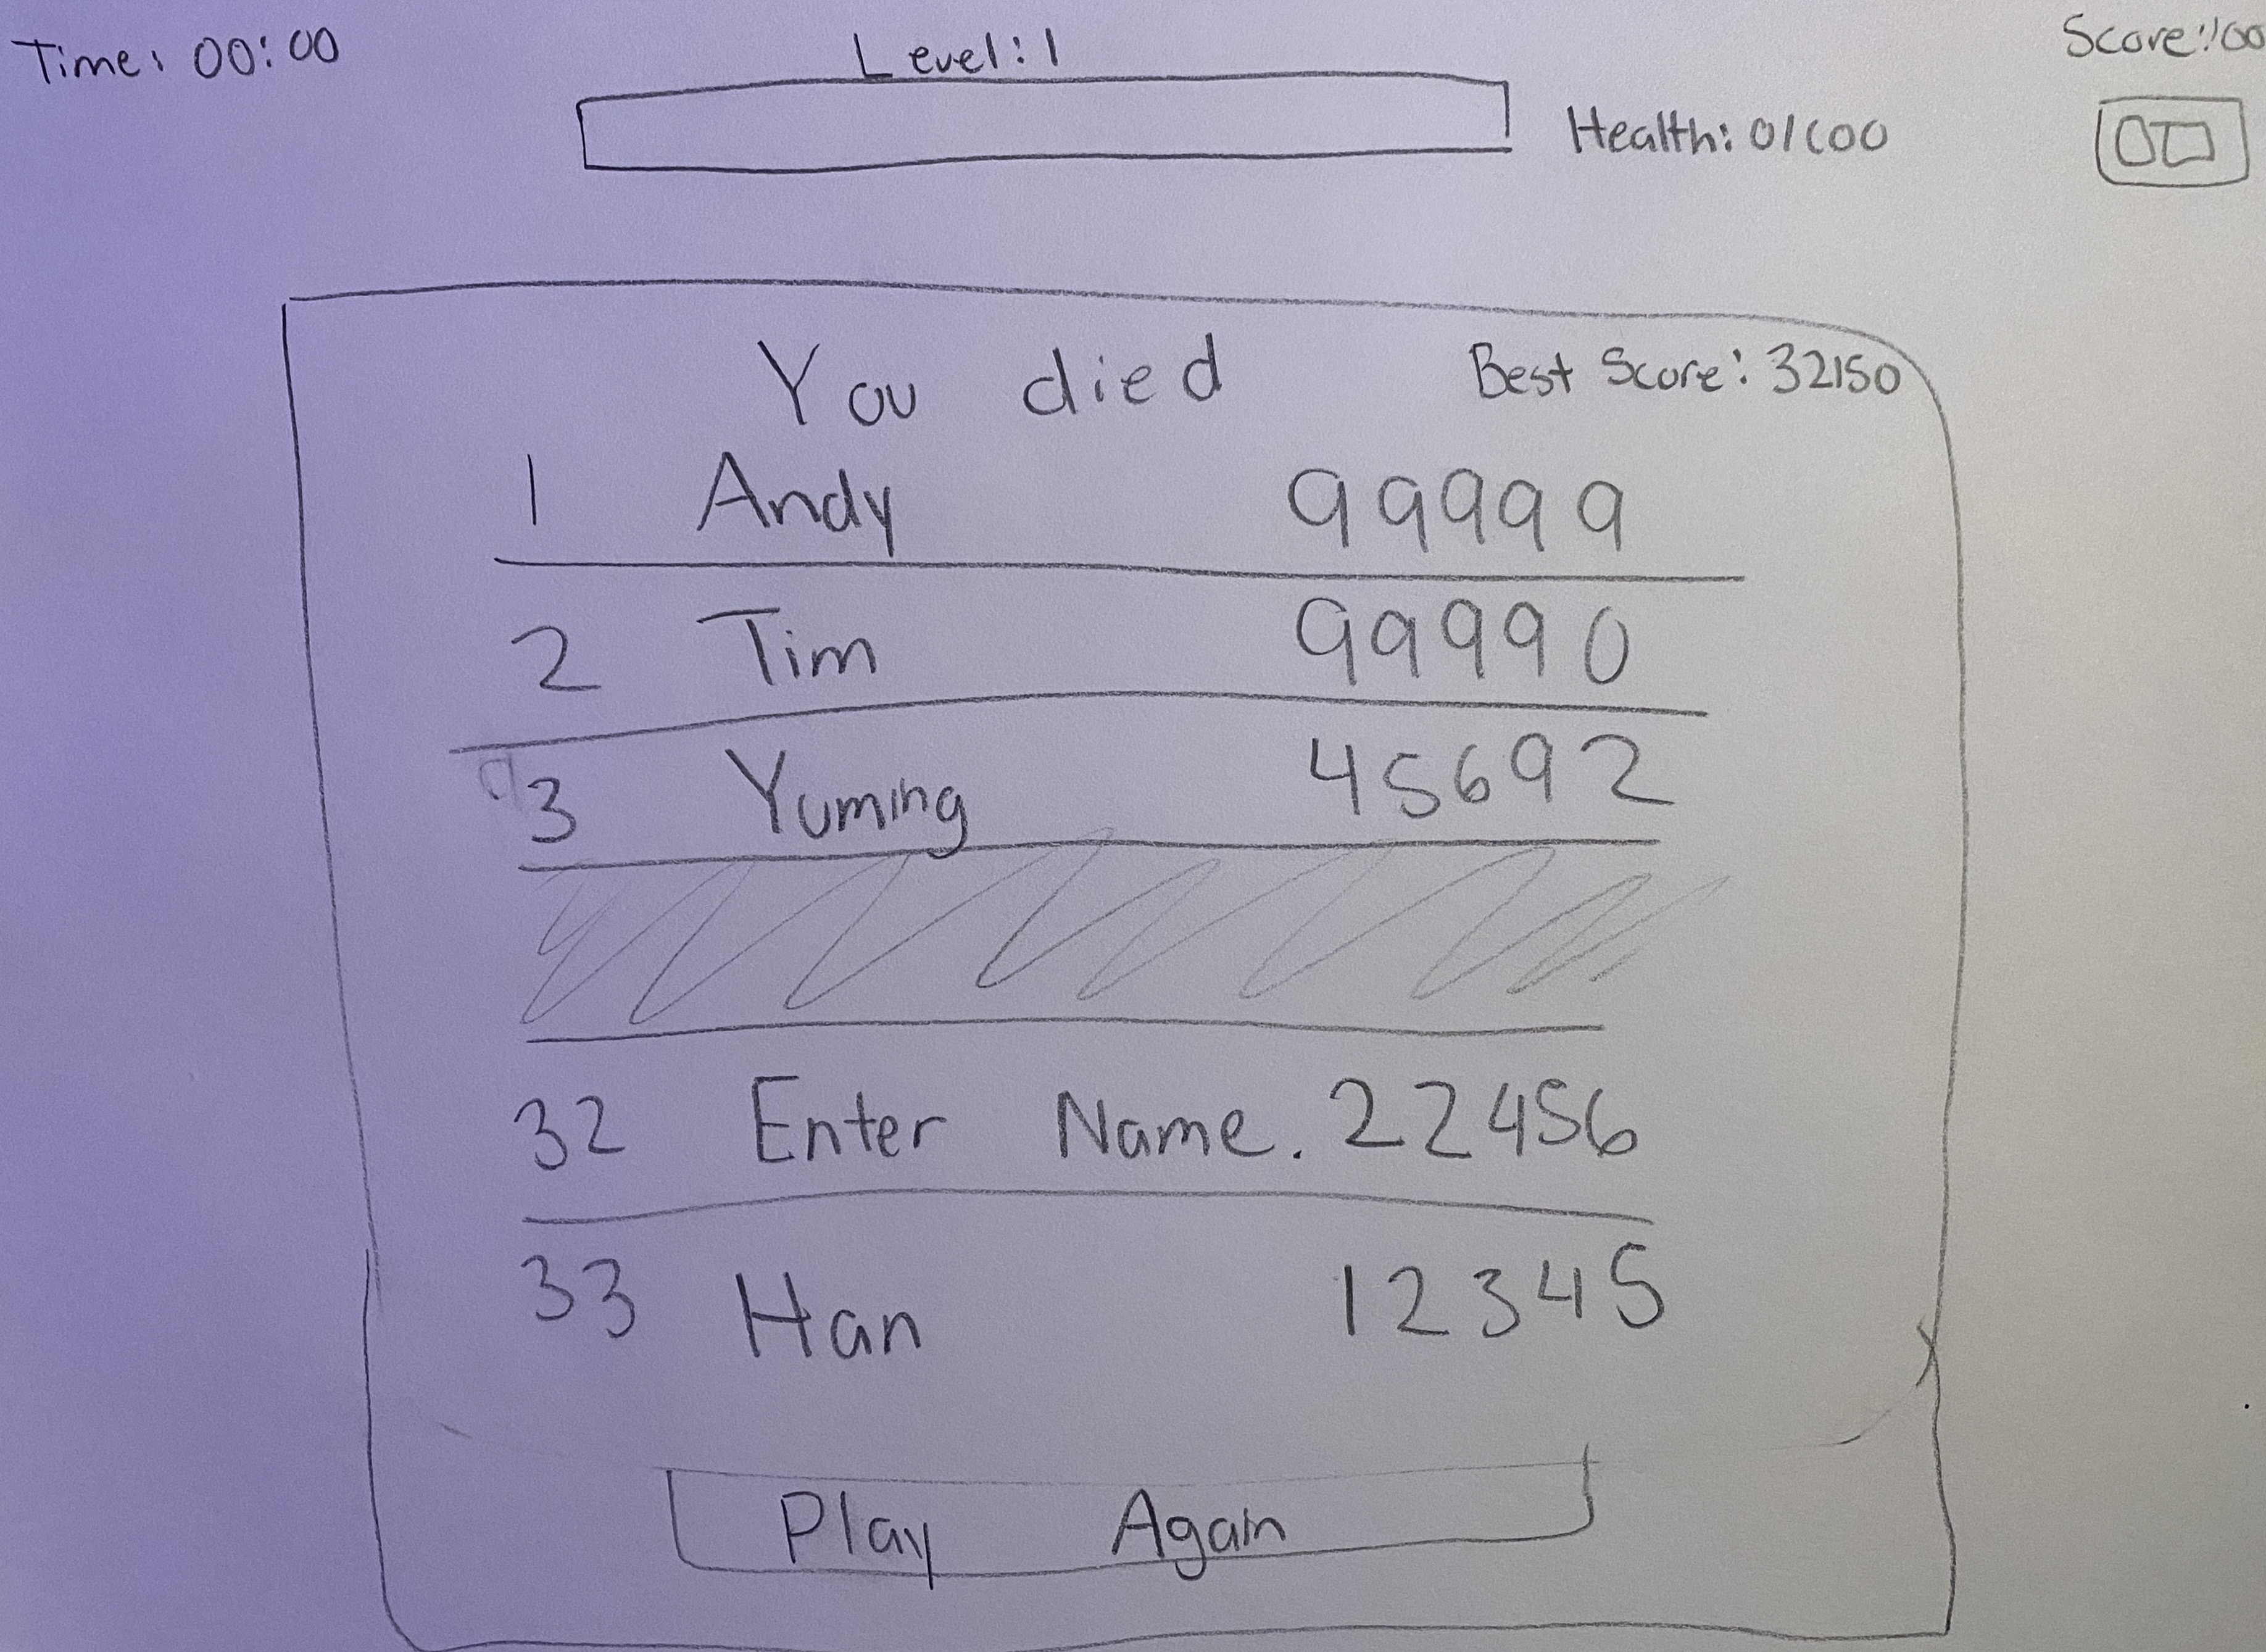 Time: 00:00
Level: 1
Score: 100
Health: 0/100
You died
Best Score: 32150
1 Andy 99999
2 Tim 99990
3 Yuming 45692
32 Enter Name. 22456
33 Han 12345
Play Again